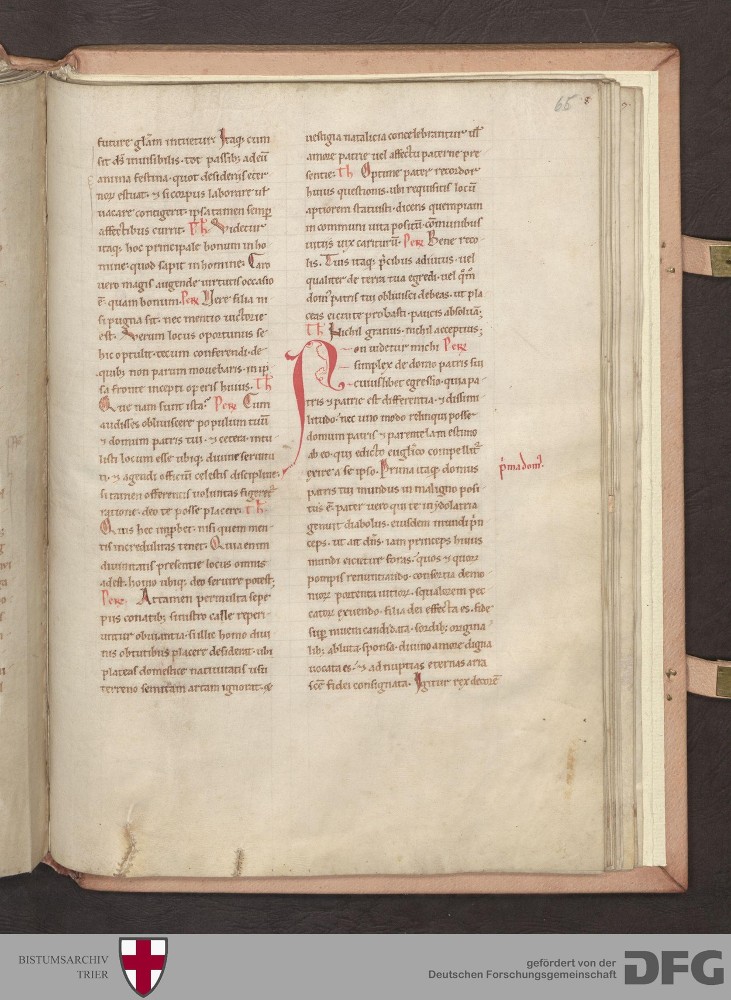 65
future gl̄am intuetur. Itaq; cum
sit d̄s inuisibilis. tot passib; ad eū
anima festina. quot desideriis ecer
nor estuat. ⁊ si corpus laborare ul̄
uacare contigerit. ipsa tamen semp̄
affectibus currit. Th̄. Videtur
itaq; hoc principale bonum in ho
mine. quod sapit in homine. Caro
uero magis augende uirtutis occasio
ē. quam bonum. Per. Vere filia ni
si pugna sit. nec mentio uictorie
est. Verum locus oportunus se
hic optulit. tecum conferendi. de
quib; non parum mouebaris. in ip
sa fronte incepti operis huius. Th̄
Que nam sunt ista? Per. Cum
audisses obliuiscere populum tuū
⁊ domum patris tui. ⁊ cetera. intu
listi locum esse ubiq; diuine seruitu
ti. ⁊ agendi officiū celestis discipline.
si tamen offerentis uoluntas
ratione. deo te posse placere. Th̄.
Quis hec improbet. nisi quem men
tis incredulitas tenet. Quia enim
diuinitatis presentie locus omnis
adest. homo ubiq; deo seruire potest;
Per. Attamen permulta sepe
piis conatib; sinistro calle reperi
untur obuiantia. si illic homo diui
nis obtutibus placere desiderat. ubi
plateas domestice natiuitatis usu
terreno semitam artam ignorat. ⁊
uestigia natalicia concelebrantur ul̄
amore patrie uel affectu paterne pre
sentie. Th̄. Optime pater recordor
huius questionis. ubi requisitis locū
aptiorem statuisti. dicens quempiam
in communi uita positū. cōmunibus
uitiis uix cariturū. Per. Bene reco
lis. Tuis itaq; p̄cibus adiutus. uel
qualiter de terra tua egredi. uel q̄m̄
domū patris tui obliuisci debeas. ut pla
ceas eius te probasti. paucis absoluā;
Th̄. Nichil gratius. nichil acceptius;
Non uidetur michi Per.
simplex de domo patris sui
cuiuslibet egressio. quia pa
tris ⁊ patrie est differentia. ⁊ dissimi
litudo. nec uno modo relinqui posse
domum patris ⁊ parentelam estimo
ab eo. qui edicto euglīco compellit̄
exire a se ipso. Prima itaq; domus
patris tui mundus in maligno posi
tus ē. pater uero qui te in ydolatria
genuit diabolus. eiusdem mundi p̄n
ceps. ut ait dn̄s. iam princeps huius
mundi eicietur foras. quos ⁊ quor
pompis renuntiando. consortia demo
nior. portenta uitior. squalorem pec
cator exuendo. filia dei effecta es. fide
sup̄ niuem candidata. sordib; origina
lib; abluta. sponsa. diuino amore digna
uocata es. ⁊ ad nuptias eternas arra
sc̄e fidei consignata. Igitur rex decorē
p̄ma dom̄.
BISTUMSARCHIV
TRIER
gefördert von der
Deutschen Forschungsgemeinschaft
DFG